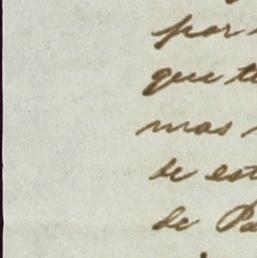 por
que te
mas
de est
de Pa